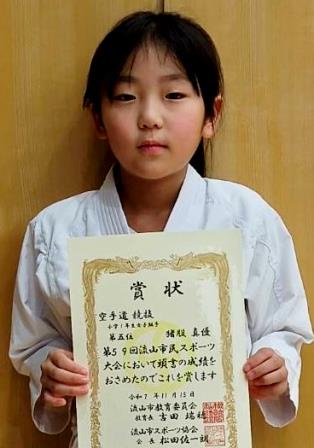 賞状
空手道 競技
小学1年生女子組手
第五位 猪股 真優
第59回流山市民スポーツ
大会において頭書の成績を
おさめたのでこれを賞します
令和7年11月15日
流山市教育委員会
教育長 吉田 瑞穂
流山市スポーツ協会
会長 松田佐一朗